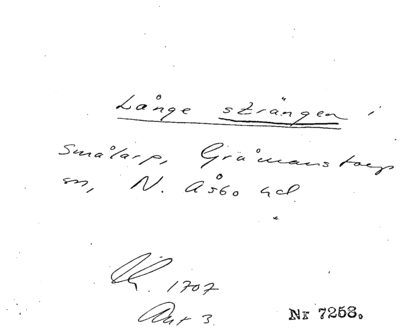 Långe strängen i
Smålarp, Gråmanstorps
sn, N. Åsbo hd
1707
Akt 3
Nr 7253.